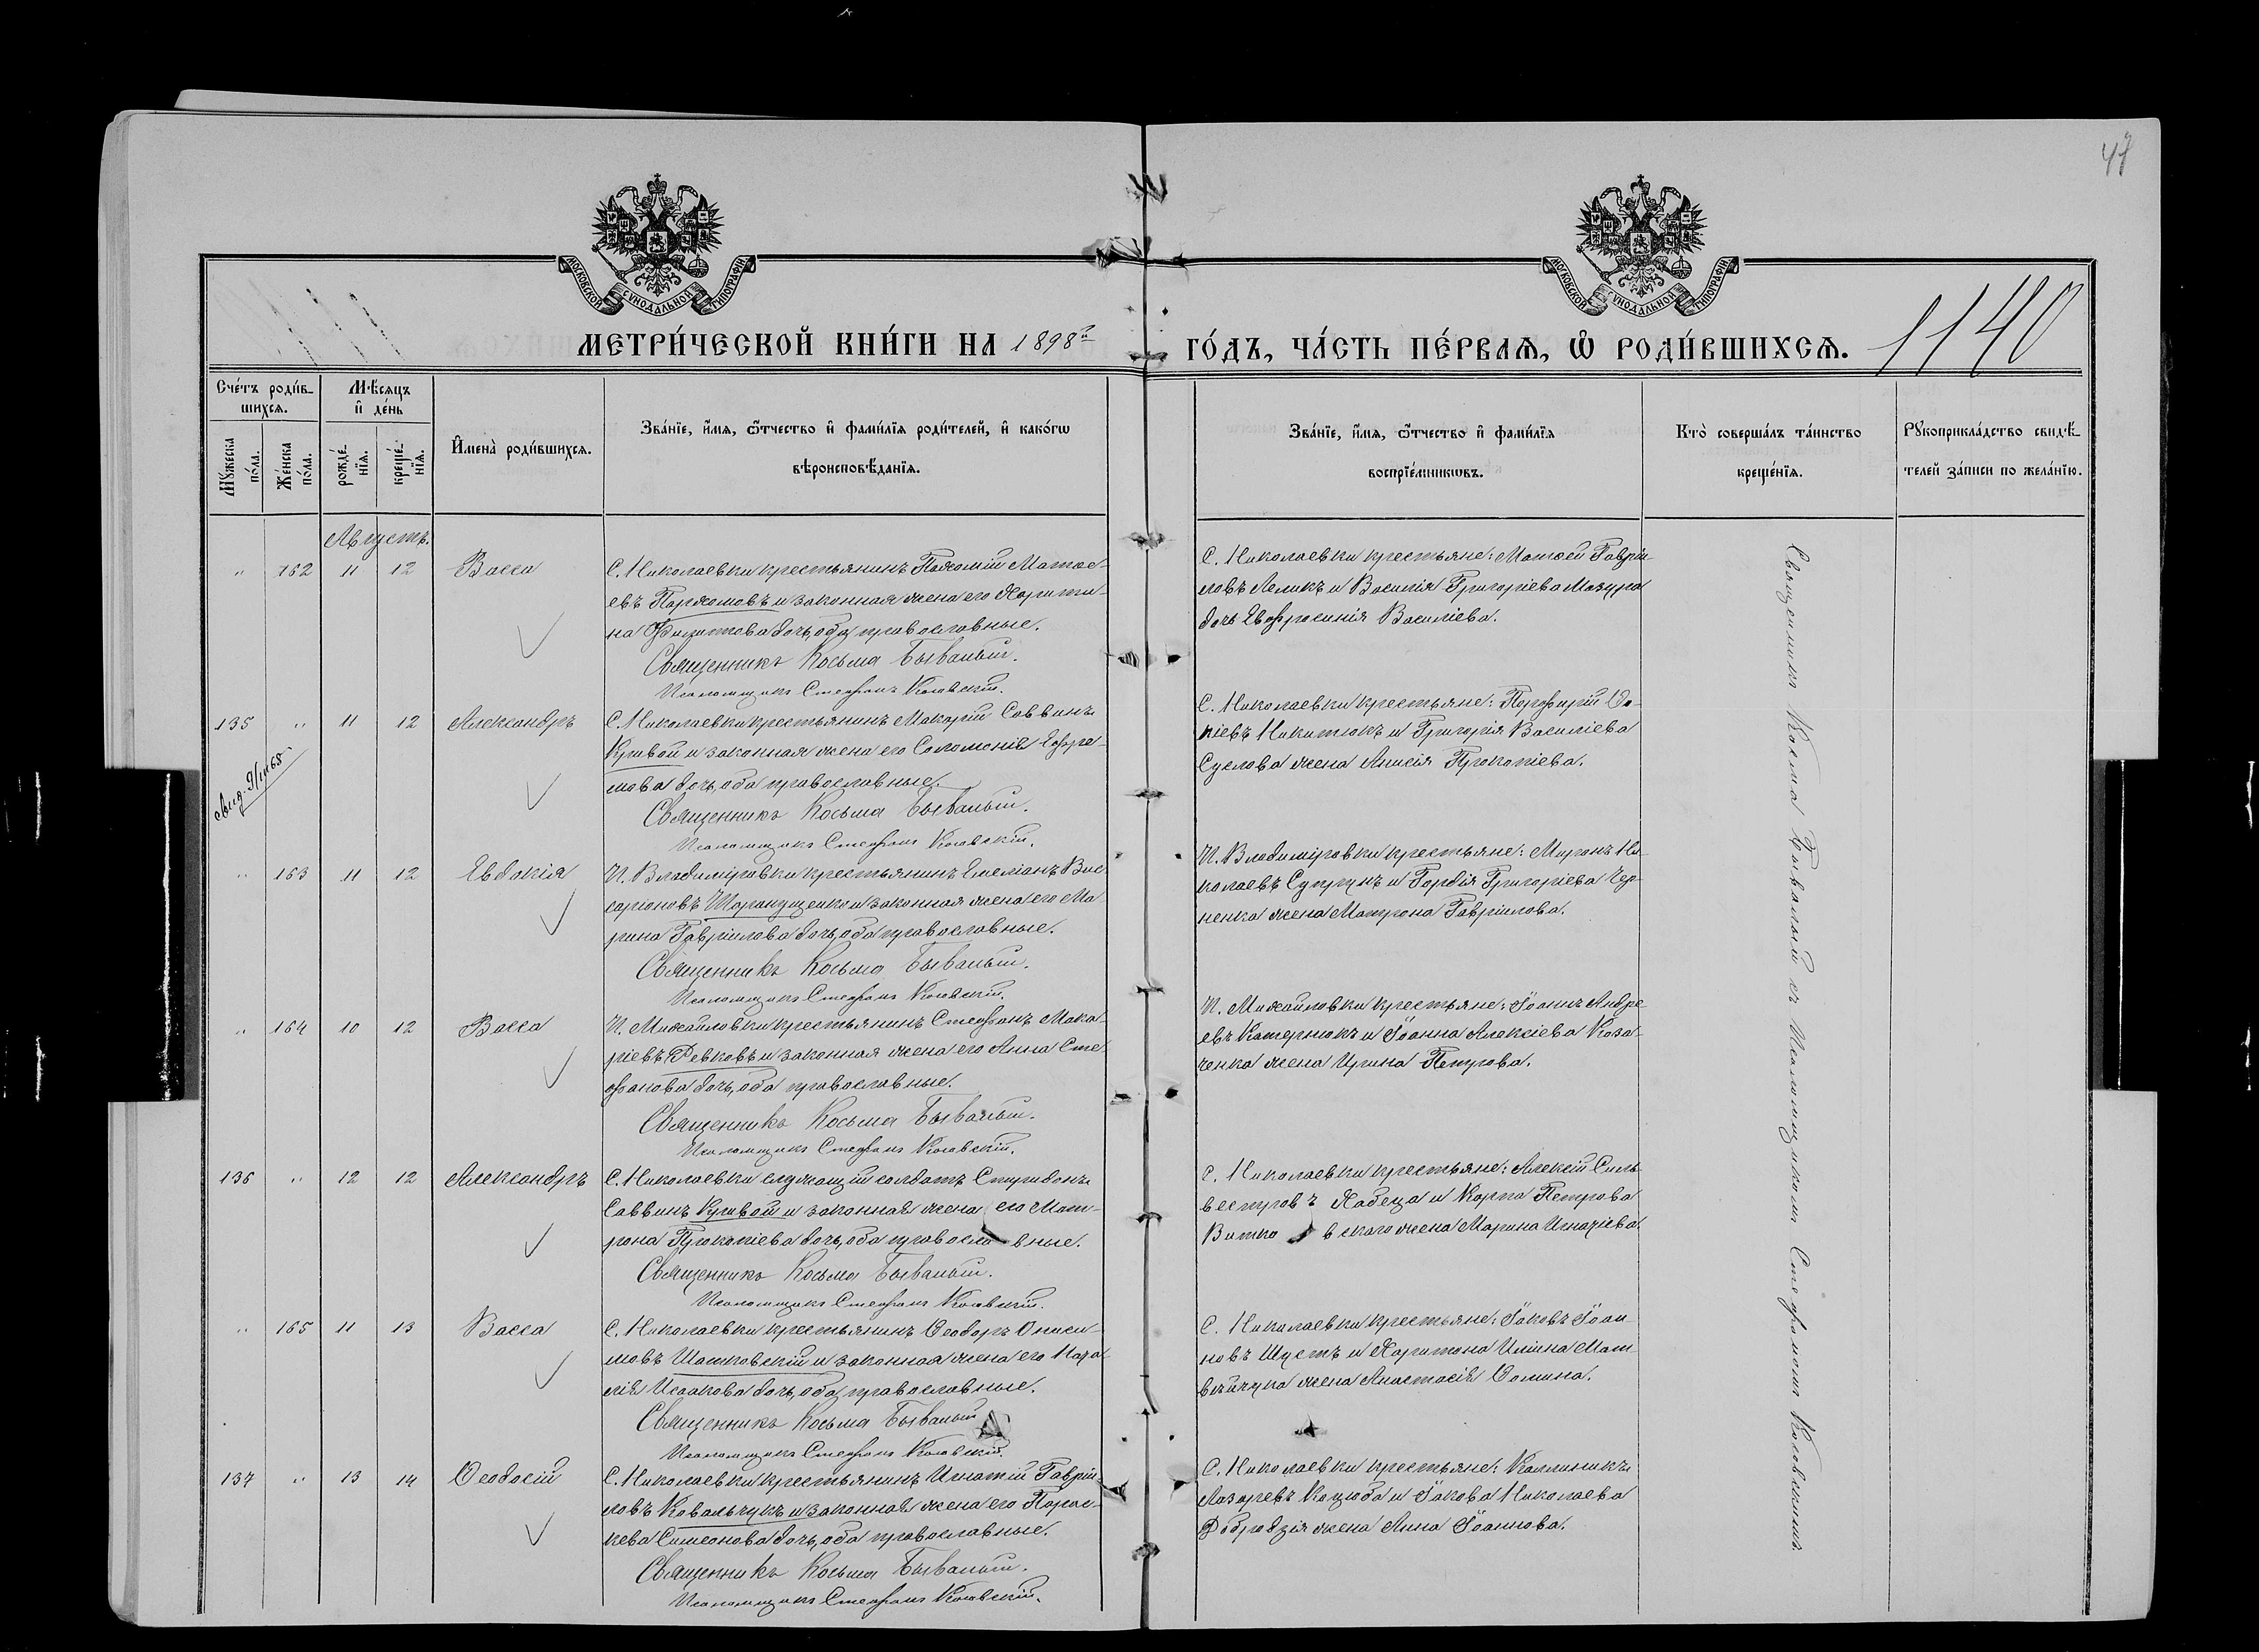 47
МОСКОВСКОЙ СѴНОДАЛЬНОЙ ТИПОГРАФІИ
МОСКОВСКОЙ СѴНОДАЛЬНОЙ ТИПОГРАФІИ
МЕТРИ́ЧЕСКОЙ КНИ́ГИ НА 1898й ГО́ДЪ, ЧА́СТЬ ПЕ́РВАѦ, Ѽ РОДИ́ВШИХСѦ. 1140
Сче́тъ роди́в-
шихсѧ.
Мѣ́сяцъ
и҆ де́нь
Мꙋ́жеска по́ла.
Же́нска по́ла.
рожде́-
нїѧ.
креще́-
нїѧ.
И҆мена̀ роди́вшихсѧ.
Зва́нїе, и҆́мѧ, ѻ҆́тчество и҆ фами́лїѧ роди́телей, и҆ како́гѡ
вѣроисповѣ́данїѧ.
Зва́нїе, и҆́мѧ, ѻ҆́тчество и҆ фами́лїѧ
воспрїе́мникѡвъ.
Кто̀ соверша́лъ та́инство
креще́нїѧ.
Рꙋкоприкла́дство свидѣ́-
телей за́писи по жела́нїю.
Августъ.
" 162 11 12 Васса
С. Николаевки крестьянинъ Пахомій Матѳе-
евъ Пархомовъ и законная жена его Харити-
на Филиппова дочь, оба православные.
Священникъ Косьма Бывалый.
Псаломщикъ Стефанъ Косовскій.
С. Николаевки крестьяне: Матѳей Гаврі-
ловъ Лемикъ и Василія Григоріева Мазура
дочь Евфросинія Василіева.
135 " 11 12 Александръ
С. Николаевки крестьянинъ Макарій Саввинъ
Кривой и законная жена его Соломонія Ефре-
мова дочь, оба православные.
Священникъ Косьма Бывалый.
Псаломщикъ Стефанъ Косовскій.
С. Николаевки крестьяне: Порфирій Про-
кіевъ Никитюкъ и Григорія Василіева
Суслова жена Анисія Прокопіева.
" 163 11 12 Евдокія
И. Владиміровки крестьянинъ Емеліанъ Вис-
саріоновъ Шарандщенко и законная жена его Ма
рина Гавріилова дочь, оба православные.
Священникъ Косьма Бывалый.
Псаломщикъ Стефанъ Косовскій.
И. Владиміровки крестьяне: Миронъ Ни-
колаевъ Супрунъ и Гордія Григоріева Чер-
ненка жена Матрона Гавріилова.
" 164 10 12 Васса
И. Михайловки крестьянинъ Стефанъ Мака-
ріевъ Ревковъ и законная жена его Анна Сте
фанова дочь, оба православные.
Священникъ Косьма Бывалый.
Псаломщикъ Стефанъ Косовскій.
И. Михайловки крестьяне: Іоаннъ Андре
евъ Катернюкъ и Іоанна Алексіева Коза-
ченка жена Ирина Петрова.
136 " 12 12 Александръ
С. Николаевки служащій солдатъ Спиридонъ
Саввинъ Кривой и законная жена его Мат-
рона Прокопіева дочь, оба православные.
Священникъ Косьма Бывалый.
Псаломщикъ Стефанъ Косовскій.
С. Николаевки крестьяне: Алексій Силь
вестровъ Хабеца и Карпа Петрова
Витковскаго жена Марина Игнатіева
" 165 11 13 Васса
С. Николаевки крестьянинъ Ѳеодоръ Ониси-
мовъ Шатковскій и законная жена его Ната
лія Исаакова дочь, оба православные.
Священникъ Косьма Бывалый
Псаломщикъ Стефанъ Косовскій.
С. Николаевки крестьяне: Іаковъ Іоан
новъ Шустъ и Харитона Иліина Мат
вѣйчука жена Анастасія Ѳомина.
137 " 13 14 Ѳеодосій
С. Николаевки крестьянинъ Игнатій Гаврій
ловъ Ковальчукъ и законная жена его Парас-
кева Симеонова дочь, оба православные.
Священникъ Косьма Бывалый.
Псаломщикъ Стефанъ Косовскій.
С. Николаевки крестьяне: Каллиникъ
Лазаревъ Коцюба и Іакова Николаева
Добродзія жена Анна Іоаннова.
Священникъ Косьма Бывалый съ Псаломщикомъ Стефаномъ Косовскимъ.